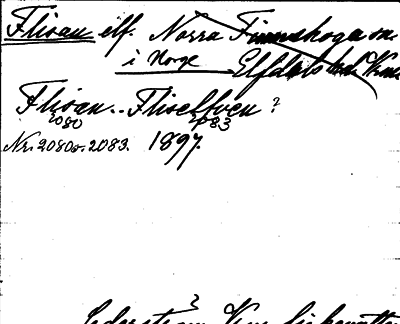 Flisan elf. Norra Finnskoga sn.
i Norge Elfdals hd Vrml.
Flisen.. Fliselfven?
2080 2083
Nr. 2080 o. 2083. 1897.